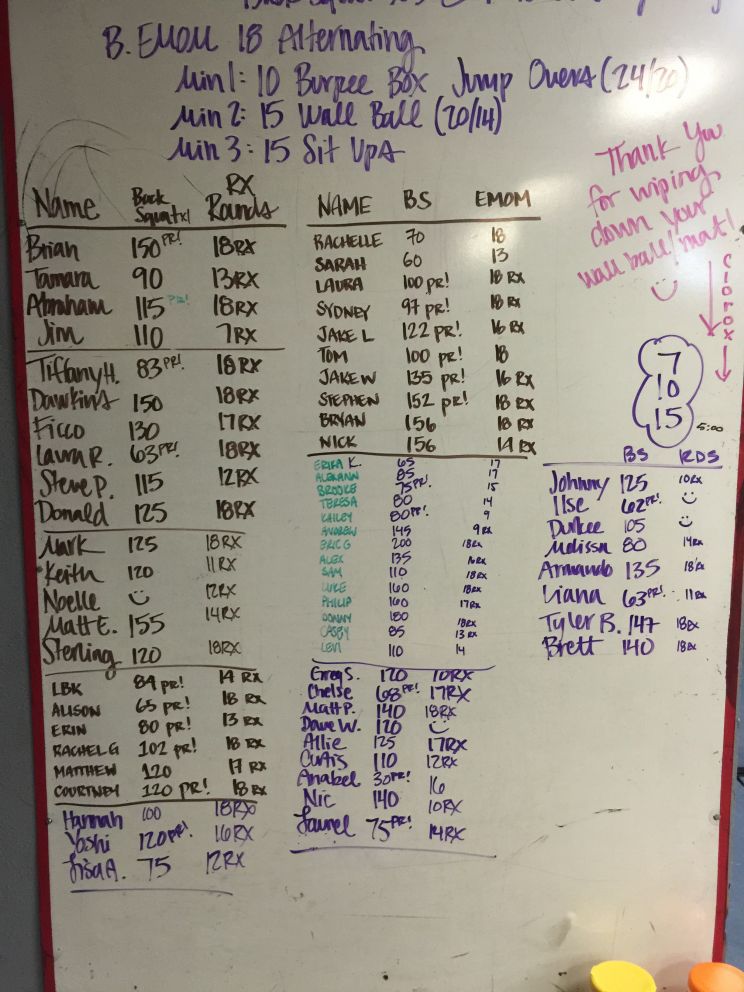 B. EMOM 18 Alternating
Min 1: 10 Burpee Box Jump Overs (24/20)
Min 2: 15 Wall Ball (20/14)
Min 3: 15 Sit Ups
Thank You
for wiping
down your
wall ball/mat!
CLOROX
7
10
15
5:00
Name Back Squat x1 RX Rounds
Brian 150 PR! 18RX
Tamara 90 13RX
Abraham 115 PR! 18RX
Jim 110 7RX
Tiffany H. 83 PR! 18RX
Dawkins 150 18RX
Ficco 130 17RX
Laura R. 63 PR! 18RX
Steve P. 115 12RX
Donald 125 18RX
Mark 125 18RX
Keith 120 11RX
Noelle 12RX
Matt E. 155 14RX
Sterling 120 18RX
LBK 84 PR! 14 RX
ALISON 65 PR! 18 RX
ERIN 80 PR! 13 RX
RACHEL G 102 PR! 18 RX
MATTHEW 120 17 RX
COURTNEY 120 PR! 18 RX
Hannah 100 18RX
Yoshi 120 PR! 16RX
Lisa A. 75 12RX
NAME BS EMOM
RACHELLE 70 18
SARAH 60 13
LAURA 100 PR! 18 RX
SYDNEY 97 PR! 18 RX
JAKE L 122 PR! 16 RX
TOM 100 PR! 18
JAKE W 135 PR! 16 RX
STEPHEN 152 PR! 18 RX
BRYAN 156 18 RX
NICK 156 14 RX
ERIKA K. 65 17
ALEXANN 85 17
BROOKE 75 PR! 15
TERESA 80 14
KAILEY 80 PR! 9
ANDREW 145 9 RX
ERIC G 200 18RX
ALEX 135 16RX
SAM 110 18RX
LUKE 160 18RX
PHILIP 160 17RX
DONNY 180 18RX
CASEY 85 13 RX
LEVI 110 14
Greg S. 120 10RX
Chelse 68 PR! 17RX
Matt P. 140 18RX
Dave W. 120
Allie 125 17RX
Curtis 110 12RX
Anabel 30 PR! 16
Nic 140 10RX
Laurel 75 PR! 14RX
BS RDS
Johnny 125 10RX
Ilse 62 PR!
Durkee 105
Melissa 80 14RX
Armando 135 18RX
Liana 63 PR! 11RX
Tyler B. 147 18RX
Brett 140 18RX